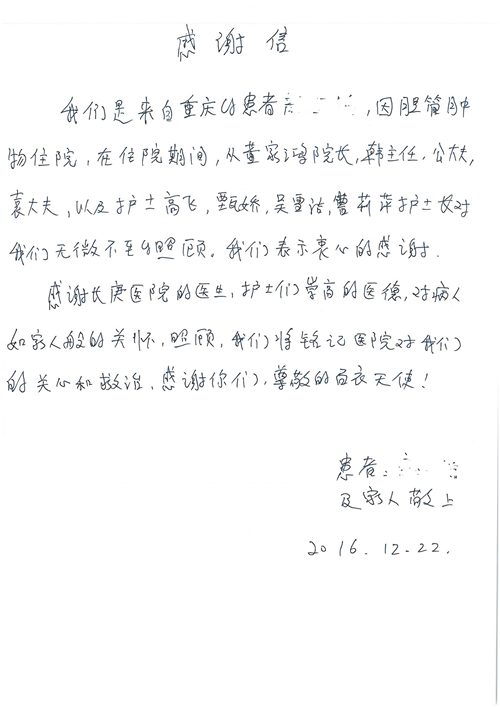 感谢信
我们是来自重庆的患者，因胆管肿
物住院，在住院期间，从董家鸿院长，韩主任，公大夫，
袁大夫，以及护士高飞，甄娇，吴雪洁，曹莉萍护士长对
我们无微不至的照顾。我们表示衷心的感谢.
感谢长庚医院的医生，护士们崇高的医德，对病人
如家人般的关怀，照顾，我们将铭记医院对我们
的关心和救治，感谢你们，尊敬的白衣天使！
患者：
及家人敬上
2016.12.22.